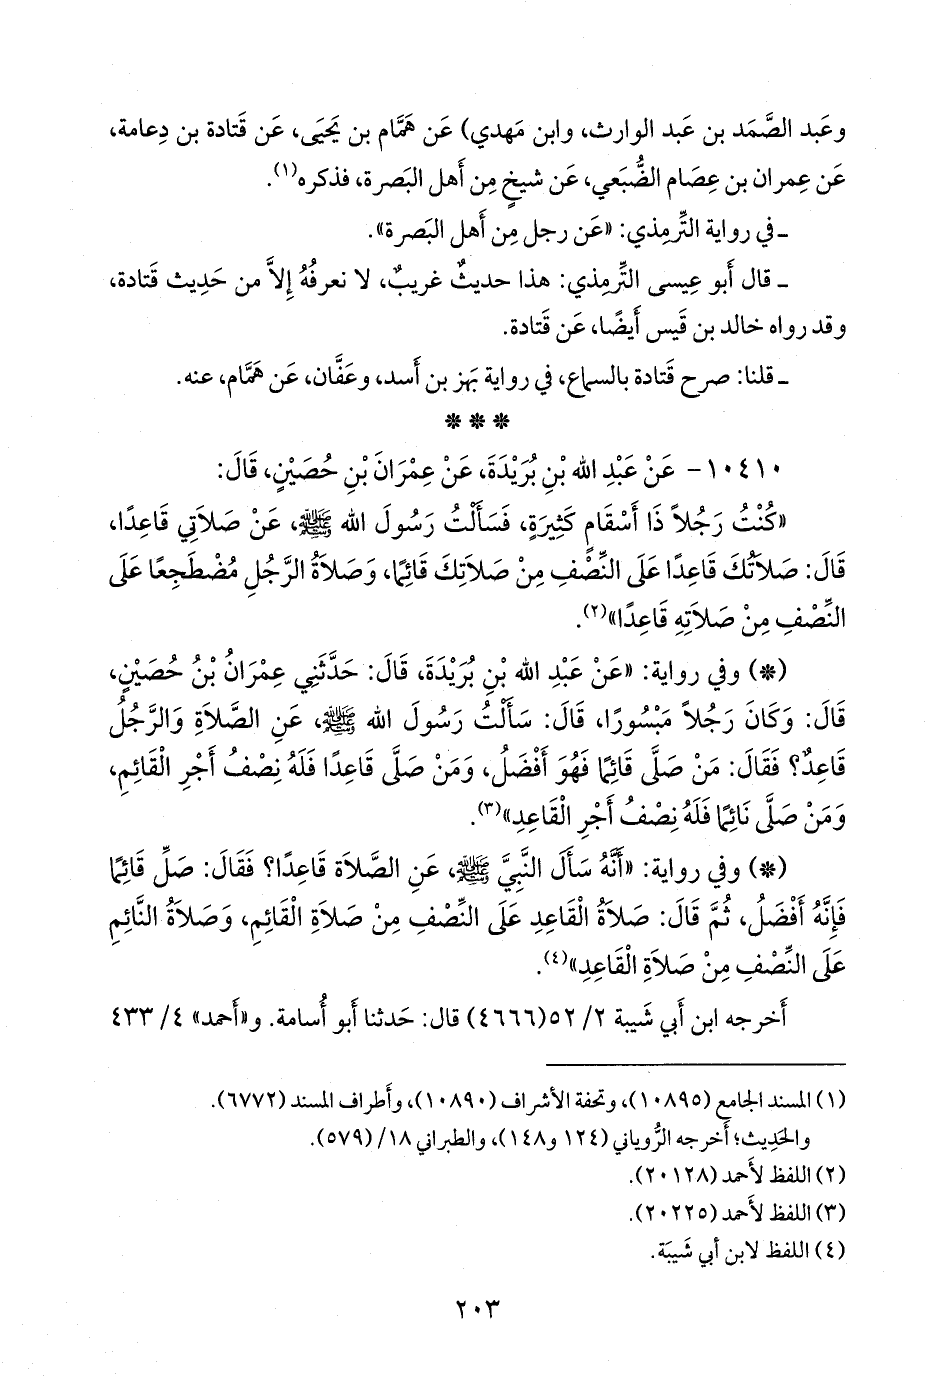 وعَبد الصَّمَد بن عَبد الوارث، وابن مَهدي) عَن هَمَّام بن يَحيَى، عَن قَتادة بن دِعامة،
عَن عِمران بن عِصَام الضُّبَعي، عَن شيخٍ مِن أَهل البَصرة، فذكره(١).
ـ في رواية التِّرمِذي: «عَن رجل مِن أَهل البَصرة».
ـ قال أَبو عِيسى التِّرمِذي: هذا حديثٌ غريبٌ، لا نعرفُهُ إِلاَّ من حَدِيث قَتادة،
وقد رواه خالد بن قَيس أَيضًا، عَن قَتادة.
ـ قلنا: صرح قَتادة بالسماع، في رواية بَهز بن أَسد، وعَفَّان، عَن هَمَّام، عنه.
* * *
١٠٤١٠- عَنْ عَبْدِ الله بْنِ بُرَيْدَةَ، عَنْ عِمْرَانَ بْنِ حُصَيْنٍ، قَالَ:
«كُنْتُ رَجُلاً ذَا أَسْقَامٍ كَثِيرَةٍ، فَسَأَلْتُ رَسُولَ الله ﷺ، عَنْ صَلاَتِي قَاعِدًا،
قَالَ: صَلاَتُكَ قَاعِدًا عَلَى النِّصْفِ مِنْ صَلاَتِكَ قَائِمًا، وَصَلاَةُ الرَّجُلِ مُضْطَجِعًا عَلَى
النِّصْفِ مِنْ صَلاَتِهِ قَاعِدًا»(٢).
(*) وفي رواية: «عَنْ عَبْدِ الله بْنِ بُرَيْدَةَ، قَالَ: حَدَّثَنِي عِمْرَانُ بْنُ حُصَيْنٍ،
قَالَ: وَكَانَ رَجُلاً مَبْسُورًا، قَالَ: سَأَلْتُ رَسُولَ الله ﷺ، عَنِ الصَّلاَةِ وَالرَّجُلُ
قَاعِدٌ؟ فَقَالَ: مَنْ صَلَّى قَائِمًا فَهُوَ أَفْضَلُ، وَمَنْ صَلَّى قَاعِدًا فَلَهُ نِصْفُ أَجْرِ الْقَائِمِ،
وَمَنْ صَلَّى نَائِمًا فَلَهُ نِصْفُ أَجْرِ الْقَاعِدِ»(٣).
(*) وفي رواية: «أَنَّهُ سَأَلَ النَّبِيَّ ﷺ، عَنِ الصَّلاَةِ قَاعِدًا؟ فَقَالَ: صَلِّ قَائِمًا
فَإِنَّهُ أَفْضَلُ، ثُمَّ قَالَ: صَلاَةُ الْقَاعِدِ عَلَى النِّصْفِ مِنْ صَلاَةِ الْقَائِمِ، وَصَلاَةُ النَّائِمِ
عَلَى النِّصْفِ مِنْ صَلاَةِ الْقَاعِدِ»(٤).
أَخرجه ابن أَبي شَيبة ٢/ ٥٢(٤٦٦٦) قال: حَدثنا أَبو أُسامة. و«أَحمد» ٤/ ٤٣٣
(١) المسند الجامع (١٠٨٩٥)، وتحفة الأشراف (١٠٨٩٠)، وأَطراف المسند (٦٧٧٢).
والحَدِيث؛ أَخرجه الرُّوياني (١٢٤ و١٤٨)، والطبراني ١٨/ (٥٧٩).
(٢) اللفظ لأَحمد (٢٠١٢٨).
(٣) اللفظ لأَحمد (٢٠٢٢٥).
(٤) اللفظ لابن أَبي شَيبَة.
٢٠٣